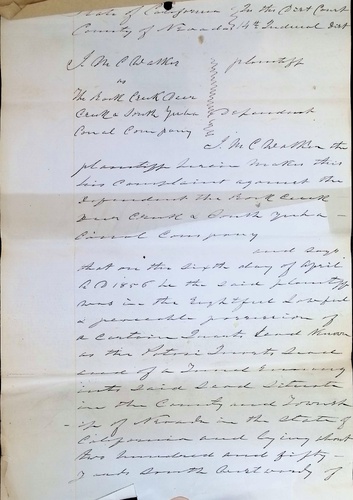 State of California } In the Dist Court
County of Nevada } 14th Judicial Dist
J. M C Walker plaintiff
vs
The Rock Creek Deer
Creek & South Yuba Defendant
Canal Company
J. M C Walker the
plaintiff herein makes this
his complaint against the
defendant the Rock Creek
Deer Creek & South Yuba
Canal Company
and says
that on the sixth day of April
A D 1856 he the said plaintiff
was in the rightful lawful
& peaceable possession of
a certain Quartz Lead known
as the Potosi Quartz Lead
and of a Tunnel Running
into said Lead situate
in the County and Townsh
-ip of Nevada in the State of
California and lying about
two hundred and fifty
yards South of